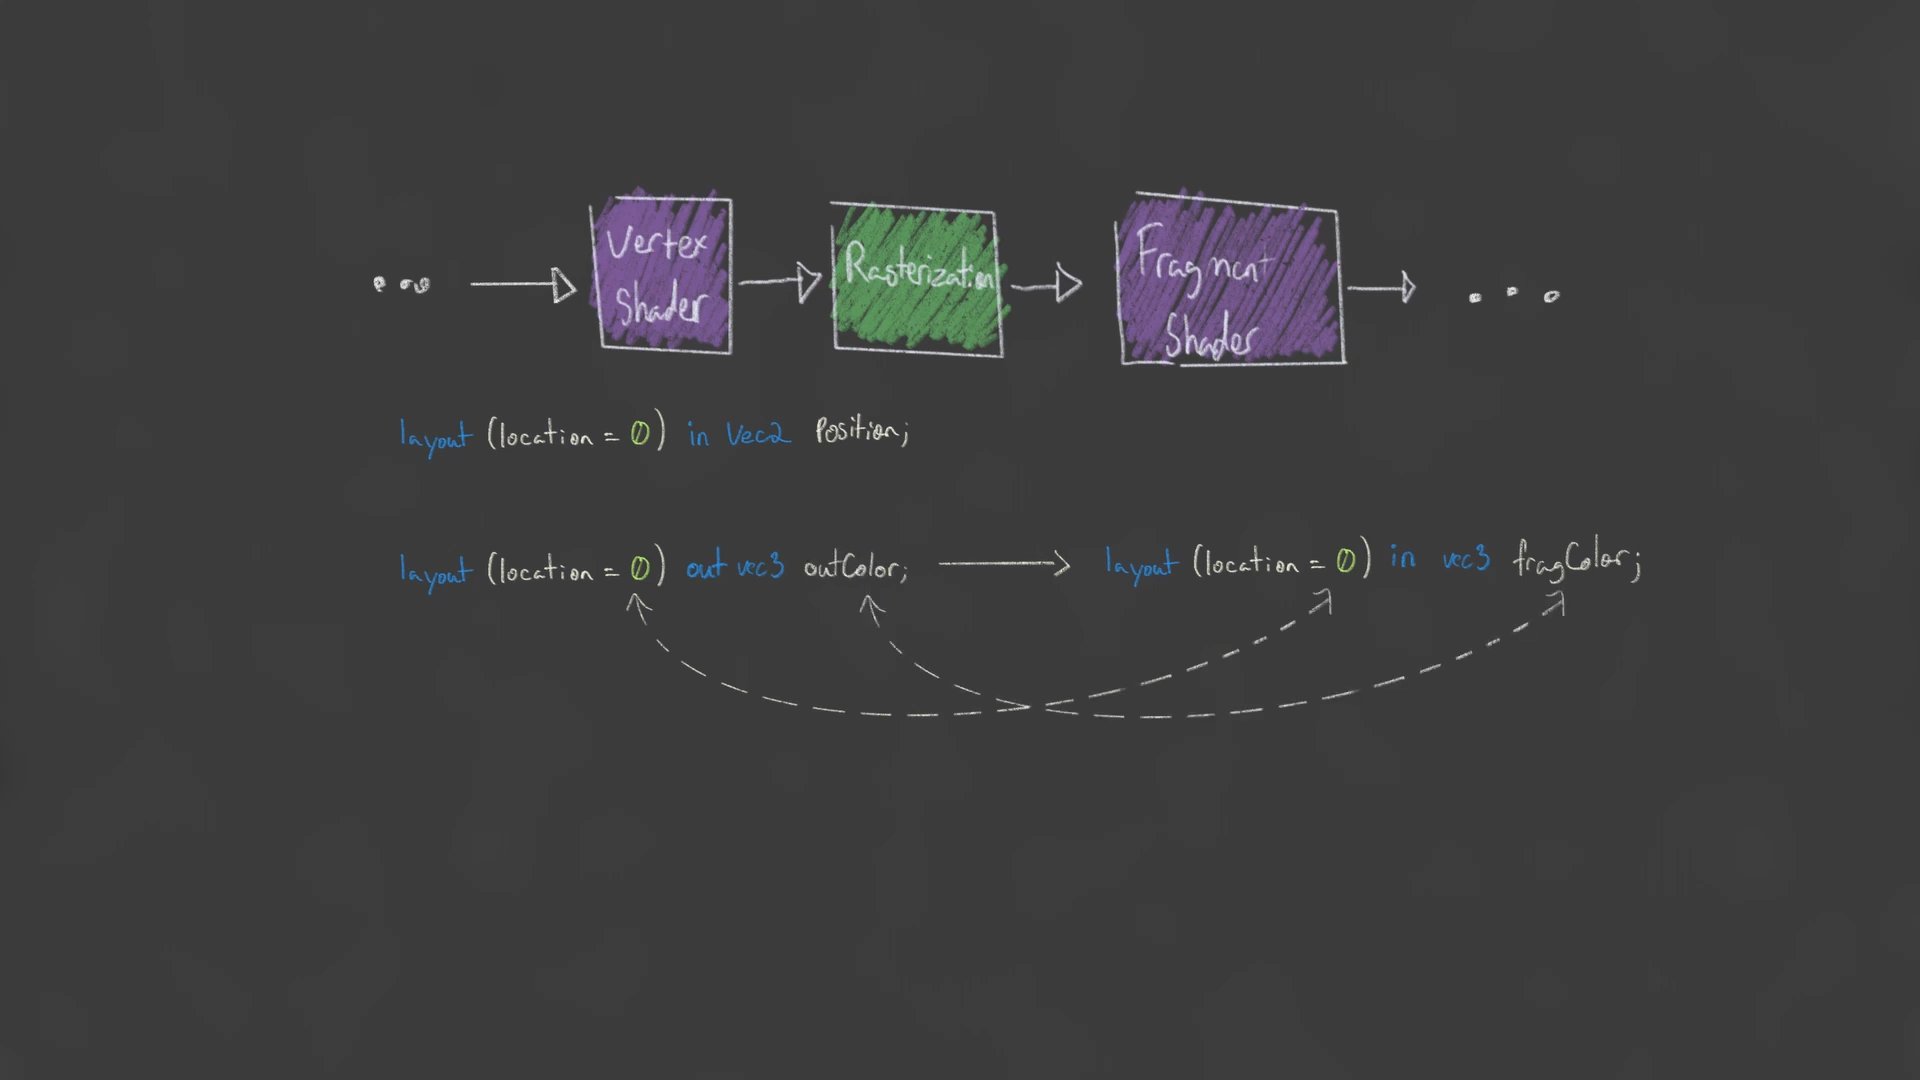 Vertex
Shader
Rasterization
Fragment
Shader
layout (location = 0) in vec2 Position;
layout (location = 0) out vec3 outColor;
layout (location = 0) in vec3 fragColor;